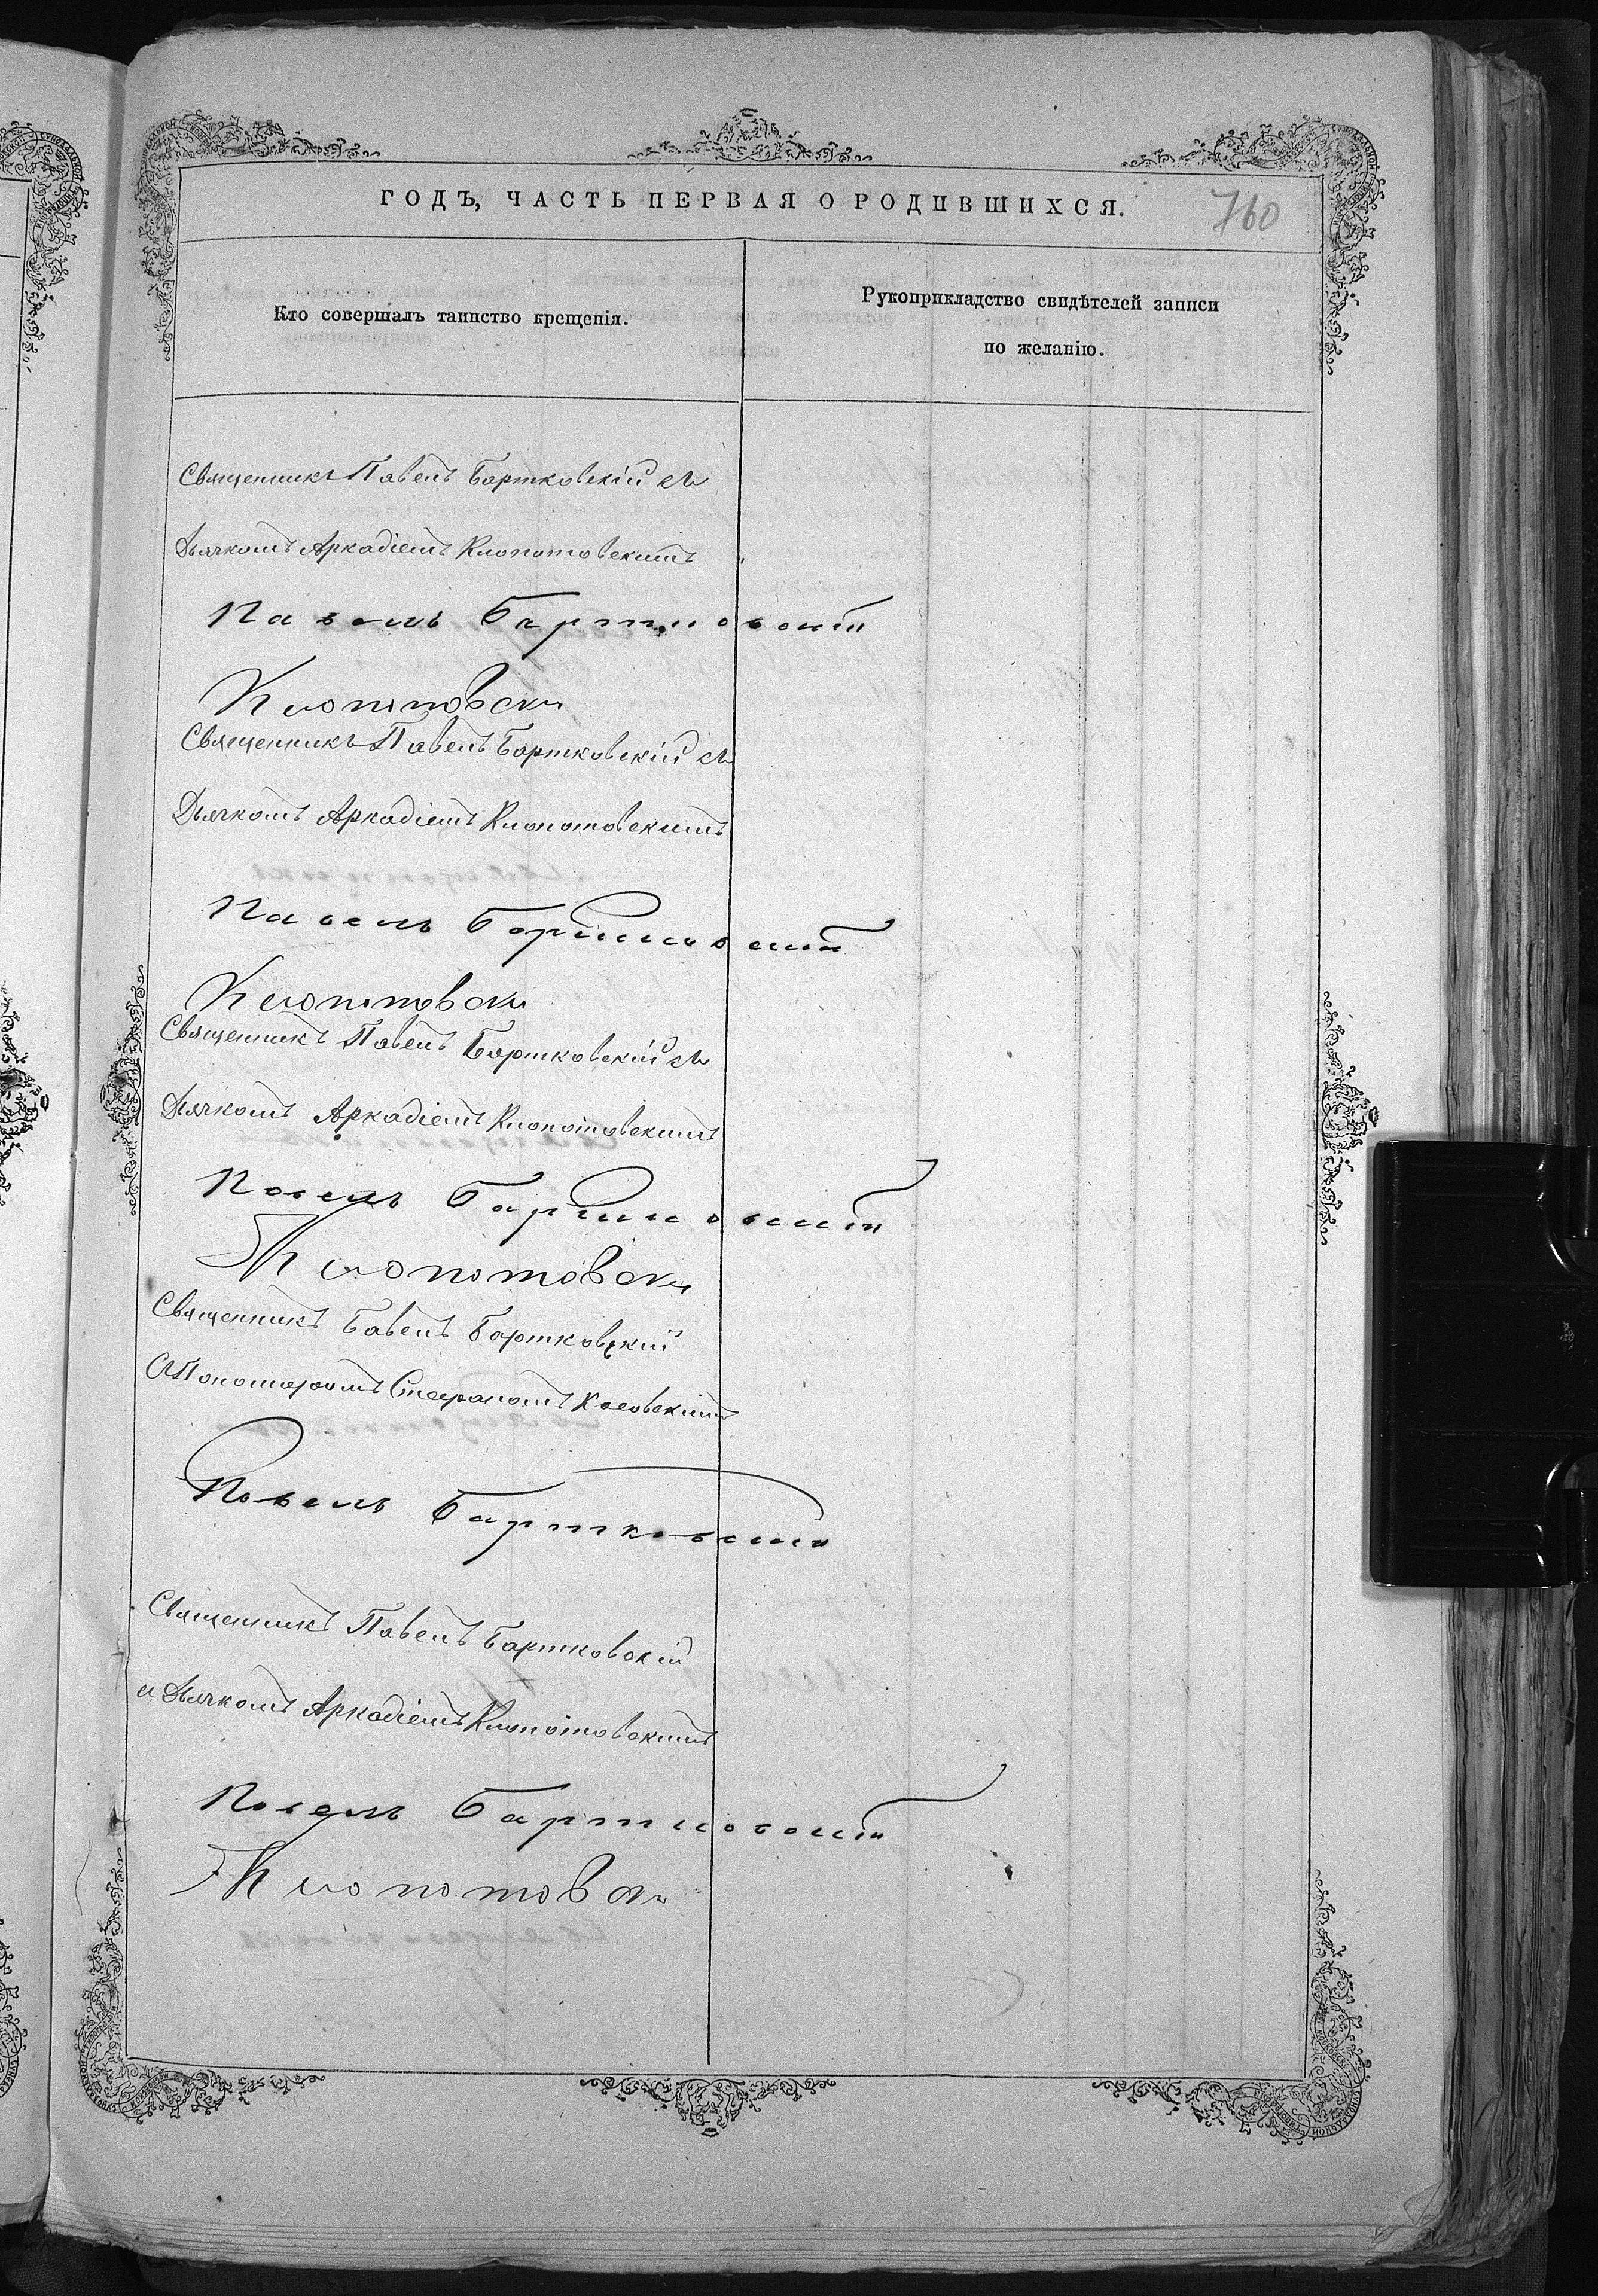 ГОДЪ, ЧАСТЬ ПЕРВАЯ О РОДИВШИХСЯ.
760
Кто совершалъ таинство крещенія.
Рукоприкладство свидѣтелей записи
по желанію.
Священникъ Павелъ Бартковскій съ
Дьячкомъ Аркадіемъ Клопотовскимъ
Павелъ Бартковскій
Клопотовски
Священникъ Павелъ Бартковскій съ
Дьячкомъ Аркадіемъ Клопотовскимъ
Павелъ Бартковскій
Клопотовски
Священникъ Павелъ Бартковскій съ
Дьячкомъ Аркадіемъ Клопотовскимъ
Павелъ Бартковскій
Клопотовски
Священникъ Бавелъ Бартковскій
Стефаномъ
Павелъ Бартковскій
Священникъ Павелъ Бартковскій
и Дьячкомъ Аркадіемъ Клопотовскимъ
Павелъ Бартковскій
Клопотовски